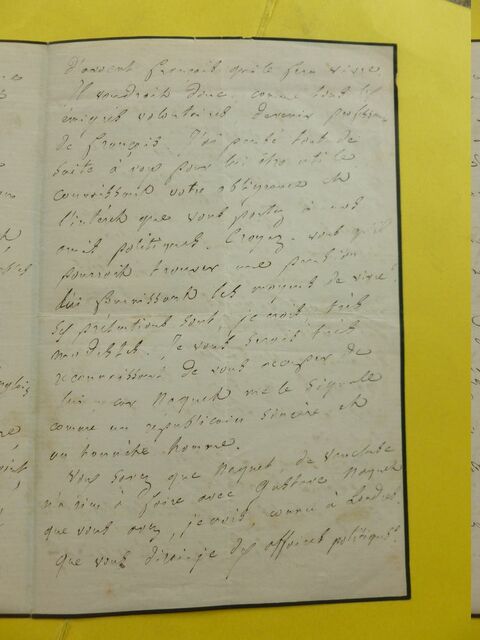 d'accent français qui le fera vivre.
Il voudrait donc, comme tous les
émigrés volontaires devenir professeur
de français. J'ai pensé tout de
suite à vous pour lui être utile
connaissant votre obligeance et
l'intérêt que vous portez à nos
amis politiques. Croyez-vous qu'il
pourrait trouver une pension
lui fournissant les moyens de vivre?
Ses prétentions sont, je crois, très
modestes. Je vous serais très
reconnaissant de vous occuper de
lui, car Naquet me le signale
comme un républicain sincère et
un honnête homme.
Vous savez que Naquet, de Vaucluse
n'a rien à faire avec Gustave Naquet
que vous avez, je crois, connu à Londres.
Que vous dirai-je des affaires politiques?